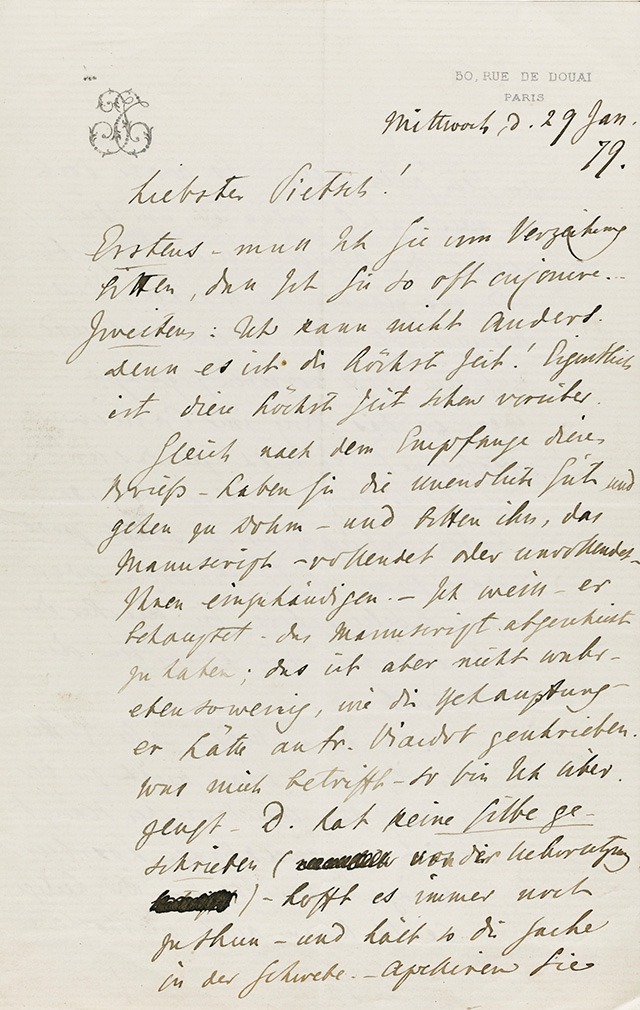 50, RUE DE DOUAI
PARIS
Mittwoch, d. 29 Jan.
79.
Liebster Pietsch!
Erstens – muss Ich Sie um Verzeihung
bitten, dass Ich Sie so oft cujonire..
Zweitens: Ich kann nicht anders.
Denn es ist die höchste Zeit! Eigentlich
ist diese höchste Zeit schon vorüber.
Gleich nach dem Empfange dieses
Briefs – haben Sie die unendliche Güte und
gehen zu Dohm – und bitten ihn, das
Manuscript – vollendet oder unvollendet –
Ihnen einzuhändigen. – Ich weiss – er
behauptet – das Manuscript abgeschickt
zu haben; das ist aber nicht wahr –
ebensowenig, wie die Behauptung –
er hätte an Fr. Viardot geschrieben.
Was mich betrifft – so bin Ich über-
zeugt – D. hat keine Silbe ge-
schrieben ( von der Uebersetzung
) – hofft es immer noch
zu thun – und hält so die Sache
in der Schwebe. – Apelliren Sie